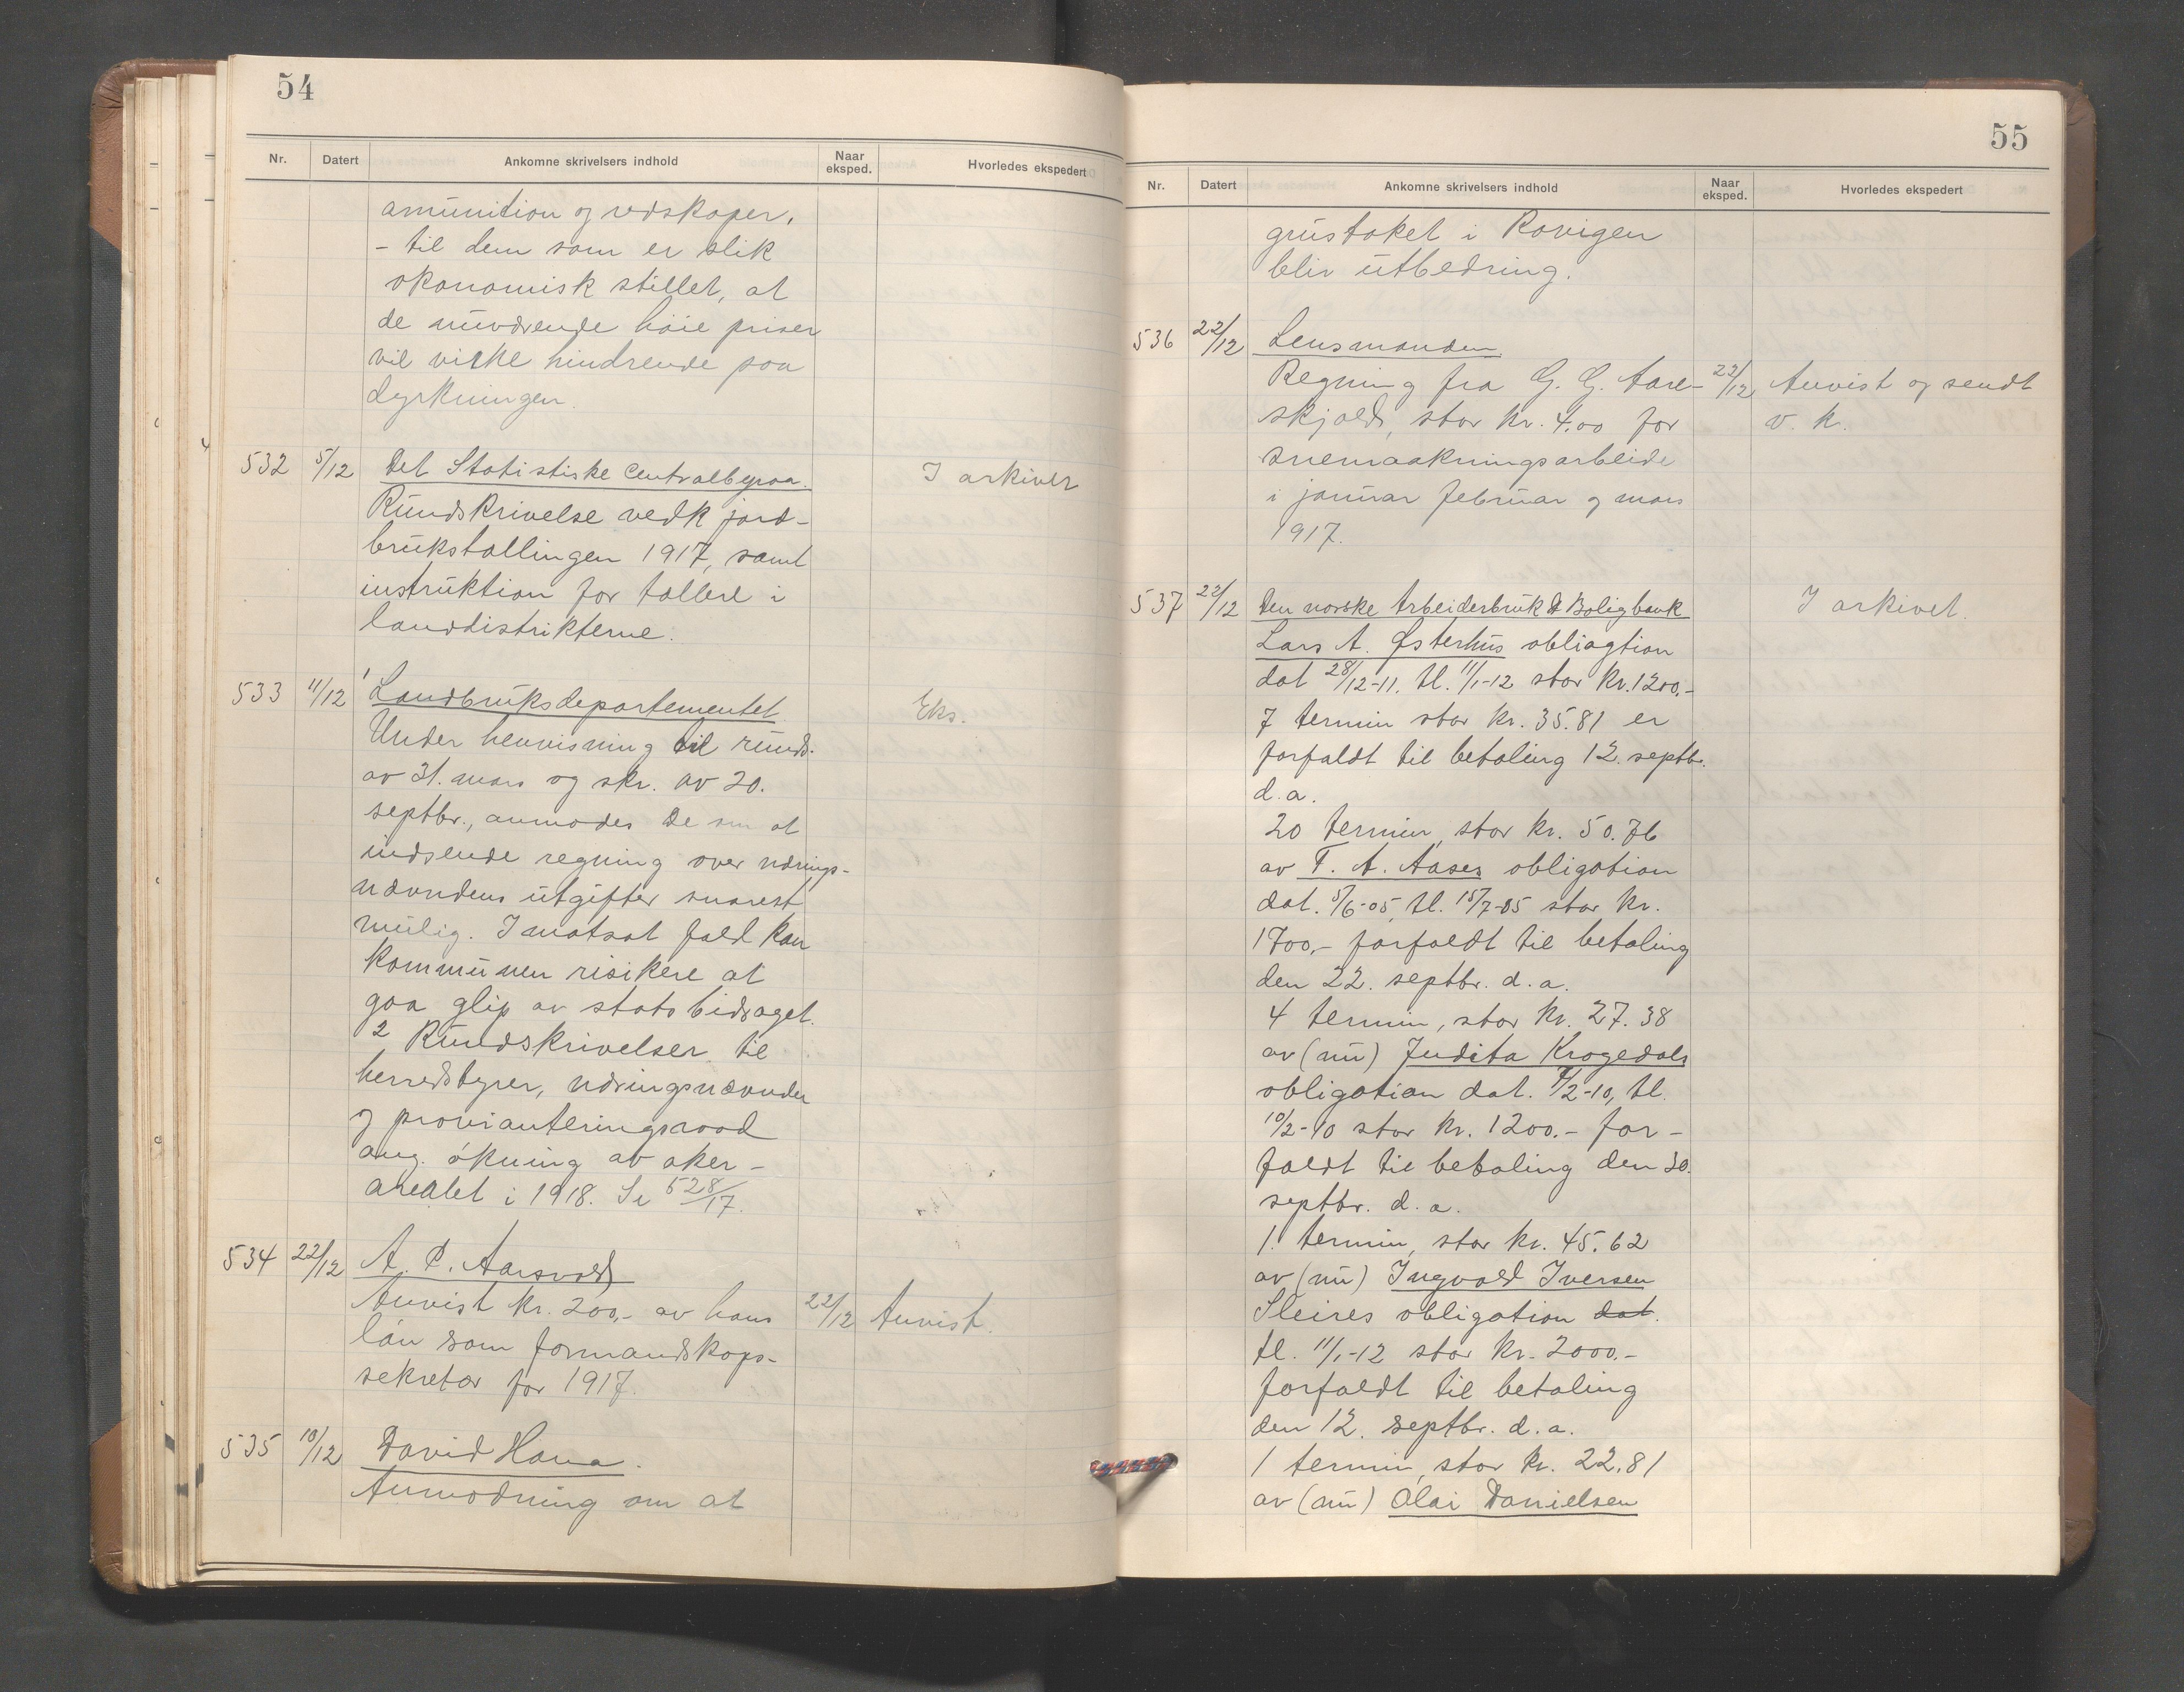 54
Nr. Datert Ankomne skrivelsers indhold Naar eksped. Hvorledes ekspedert
amunition og redskaper,
- til dem som er slik
økonomisk stillet, at
de nuværende høie priser
vil virke hindrende paa
dyrkningen.
532 5/12 Det Statistiske Centralbyraa. I arkivet
Rundskrivelse vedk jord-
brukstællingen 1917, samt
instruktion for tællere i
landdistrikterne.
533 11/12 1 Landbruksdepartementet. Eks.
Under henvisning til runds.
av 31. mars og skr. av 20.
septbr., anmodes De om at
indsende regning over nærings-
nævndens utgifter snarest
mulig. I motsat fald kan
kommunen risikere at
gaa glip av statsbidraget.
2 Rundskrivelser til
herredstyrer, næringsnævnder
og provianteringsraad
ang. økning av aker-
arealet i 1918. Se 528/17.
534 22/12 A. P. Aarsvold
Anvist kr. 200,- av hans 22/12 Anvist.
løn som formandskaps-
sekretær for 1917.
535 10/12 David Hana.
Anmodning om at
55
Nr. Datert Ankomne skrivelsers indhold Naar eksped. Hvorledes ekspedert
grustaket i Rovigen
bliv utbedring.
536 22/12 Lensmanden
Regning fra G. G. Aare- 22/12 Anvist og sendt
skjold, stor kr. 4.00 for v. k.
snemaakningsarbeide
i januar februar og mars
1917.
537 22/12 Den norske Arbeiderbruk & Boligbank I arkivet.
Lars A. Østerhus obliagtion
dat 28/12-11. tl. 11/1-12 stor kr. 1200,-
7 termin stor kr. 35.81 er
forfaldt til betaling 12. septbr.
d.a.
20 termin, stor kr. 50.76
av T. A. Aases obligation
dat. 5/6-05, tl. 15/7-05 stor kr.
1700,- forfaldt til betaling
den 22. septbr. d. a.
4 termin, stor kr. 27.38
av (nu) Judita Krogedals
obligation dat. /2-10, tl.
10/2-10 stor kr. 1200.- for-
faldt til betaling den 30.
septbr. d. a.
1. termin, stor kr. 45.62
av (nu) Ingvald Iversen
Sleires obligation dat.
tl. 11/1-12 stor kr. 2000.-
forfaldt til betaling
den 12. septbr. d. a.
1 termin, stor kr. 22.81
av (nu) Olai Danielsen